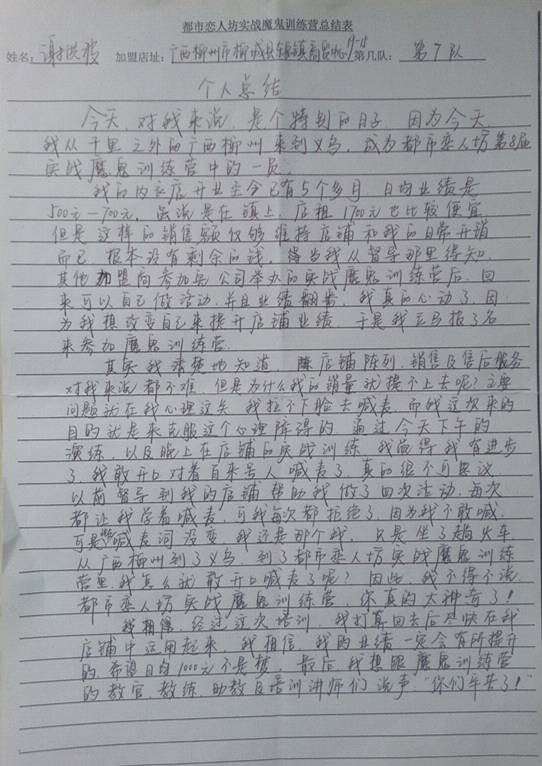 都市恋人坊实战魔鬼训练营总结表
姓名: 谢洪艳 加盟店址: 广西柳州市柳城县镇商贸中心9-15 第几队: 第7队
个人总结
今天,对我来说,是个特别的日子,因为今天
我从千里之外的广西柳州来到义乌,成为都市恋人坊第8届
实战魔鬼训练营中的一员。
我的内衣店开业至今已有5个多月,日均业绩是
500元—700元,虽说是在镇上,店租1700元也比较便宜,
但是这样的销售额仅够维持店铺和我的日常开销
而已,根本没有剩余的钱。当我从督导那里得知,
其他加盟商参加完公司举办的实战魔鬼训练营后,回
来可以自己做活动,并且业绩翻番,我真的心动了,因
为我想改变自己来提升店铺业绩,于是我立马报了名
来参加魔鬼训练营。
其实我清楚地知道,店铺陈列、销售及售后服务
对我来说都不难,但是为什么我的销量就提不上去呢?主要
问题就在我心理这关,我拉不下脸去喊麦,而我这次来的
目的就是来克服这个心理障碍的,通过今天下午的
演练,以及晚上在店铺的实战训练,我觉得我有进步
了,我敢开口对着百来号人喊麦了,真的很不可思议,
以前督导到我的店铺帮助我做了四次活动,每次
都让我学着喊麦,可我每次都拒绝了,因为我不敢喊,
可是喊麦词没变,我还是那个我,只是坐了趟火车,
从广西柳州到了义乌,到了都市恋人坊实战魔鬼训练
营里,我怎么就敢开口喊麦了呢?因此,我不得不说,
都市恋人坊实战魔鬼训练营,你真的太神奇了!
我相信,经过这次培训,我打算回去后尽快在我
店铺中运用起来,我相信,我的业绩一定会有所提升
的,希望日均1000元不是梦,最后,我想跟魔鬼训练营
的教官、教练、助教及培训讲师们说声:“你们辛苦了!”